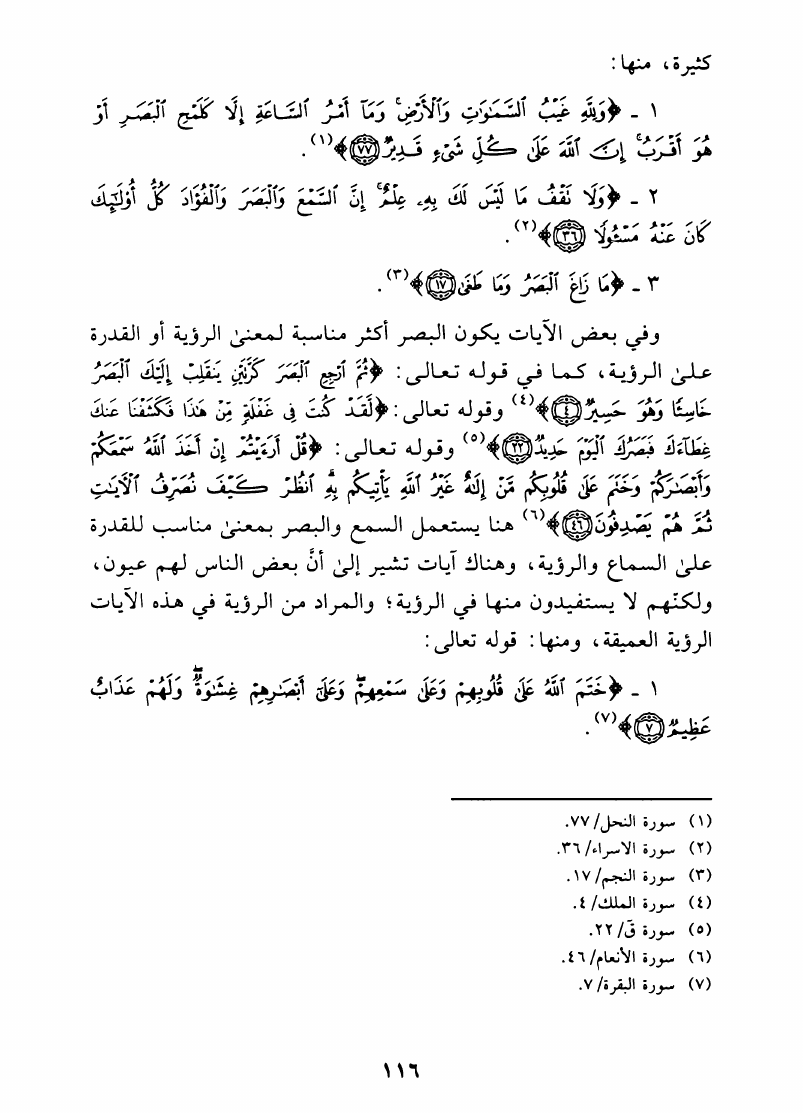 كثيرة، منها:
١ - ﴿وَلِلَّهِ غَيْبُ السَّمَٰوَٰتِ وَالْأَرْضِ ۚ وَمَآ أَمْرُ السَّاعَةِ إِلَّا كَلَمْحِ الْبَصَرِ أَوْ
هُوَ أَقْرَبُ ۚ إِنَّ اللَّهَ عَلَىٰ كُلِّ شَىْءٍ قَدِيرٌ ٧٧﴾(١).
٢ - ﴿وَلَا نَقْفُ مَا لَيْسَ لَكَ بِهِۦ عِلْمٌ ۚ إِنَّ السَّمْعَ وَالْبَصَرَ وَالْفُؤَادَ كُلُّ أُوْلَٰٓئِكَ
كَانَ عَنْهُ مَسْئُولًا ٣٦﴾(٢).
٣ - ﴿مَا زَاغَ الْبَصَرُ وَمَا طَغَىٰ ١٧﴾(٣).
وفي بعض الآيات يكون البصر أكثر مناسبة لمعنىٰ الرؤية أو القدرة
علىٰ الرؤية، كما في قوله تعالى: ﴿ثُمَّ ارْجِعِ الْبَصَرَ كَرَّتَيْنِ يَنقَلِبْ إِلَيْكَ الْبَصَرُ
خَاسِئًا وَهُوَ حَسِيرٌ ٤﴾(٤) وقوله تعالى: ﴿لَّقَدْ كُنتَ فِى غَفْلَةٍ مِّنْ هَٰذَا فَكَشَفْنَا عَنكَ
غِطَآءَكَ فَبَصَرُكَ الْيَوْمَ حَدِيدٌ ٢٢﴾(٥) وقوله تعالى: ﴿قُلْ أَرَءَيْتُمْ إِنْ أَخَذَ اللَّهُ سَمْعَكُمْ
وَأَبْصَٰرَكُمْ وَخَتَمَ عَلَىٰ قُلُوبِكُم مَّنْ إِلَٰهٌ غَيْرُ اللَّهِ يَأْتِيكُم بِهِ ۗ انظُرْ كَيْفَ نُصَرِّفُ الْآيَٰتِ
ثُمَّ هُمْ يَصْدِفُونَ ٤٦﴾(٦) هنا يستعمل السمع والبصر بمعنىٰ مناسب للقدرة
علىٰ السماع والرؤية، وهناك آيات تشير إلىٰ أنَّ بعض الناس لهم عيون،
ولكنّهم لا يستفيدون منها في الرؤية؛ والمراد من الرؤية في هذه الآيات
الرؤية العميقة، ومنها: قوله تعالى:
١ - ﴿خَتَمَ اللَّهُ عَلَىٰ قُلُوبِهِمْ وَعَلَىٰ سَمْعِهِمْ ۖ وَعَلَىٰٓ أَبْصَٰرِهِمْ غِشَٰوَةٌ ۖ وَلَهُمْ عَذَابٌ
عَظِيمٌ ٧﴾(٧).
(١) سورة النحل/٧٧.
(٢) سورة الاسراء/٣٦.
(٣) سورة النجم/١٧.
(٤) سورة الملك/٤.
(٥) سورة قۤ/٢٢.
(٦) سورة الأنعام/٤٦.
(٧) سورة البقرة/٧.
١١٦